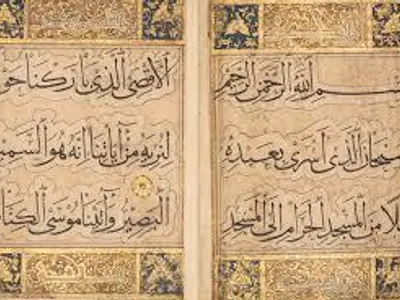 سم الله الرحمن الرحيم
سبحان الذى اسرى بعبده
لا من المسجد الحرام الى المسجد
الاقصى الذى باركنا حو
لنريه من آياتنا انه هو السميع
البصير وآتينا موسى الكتا